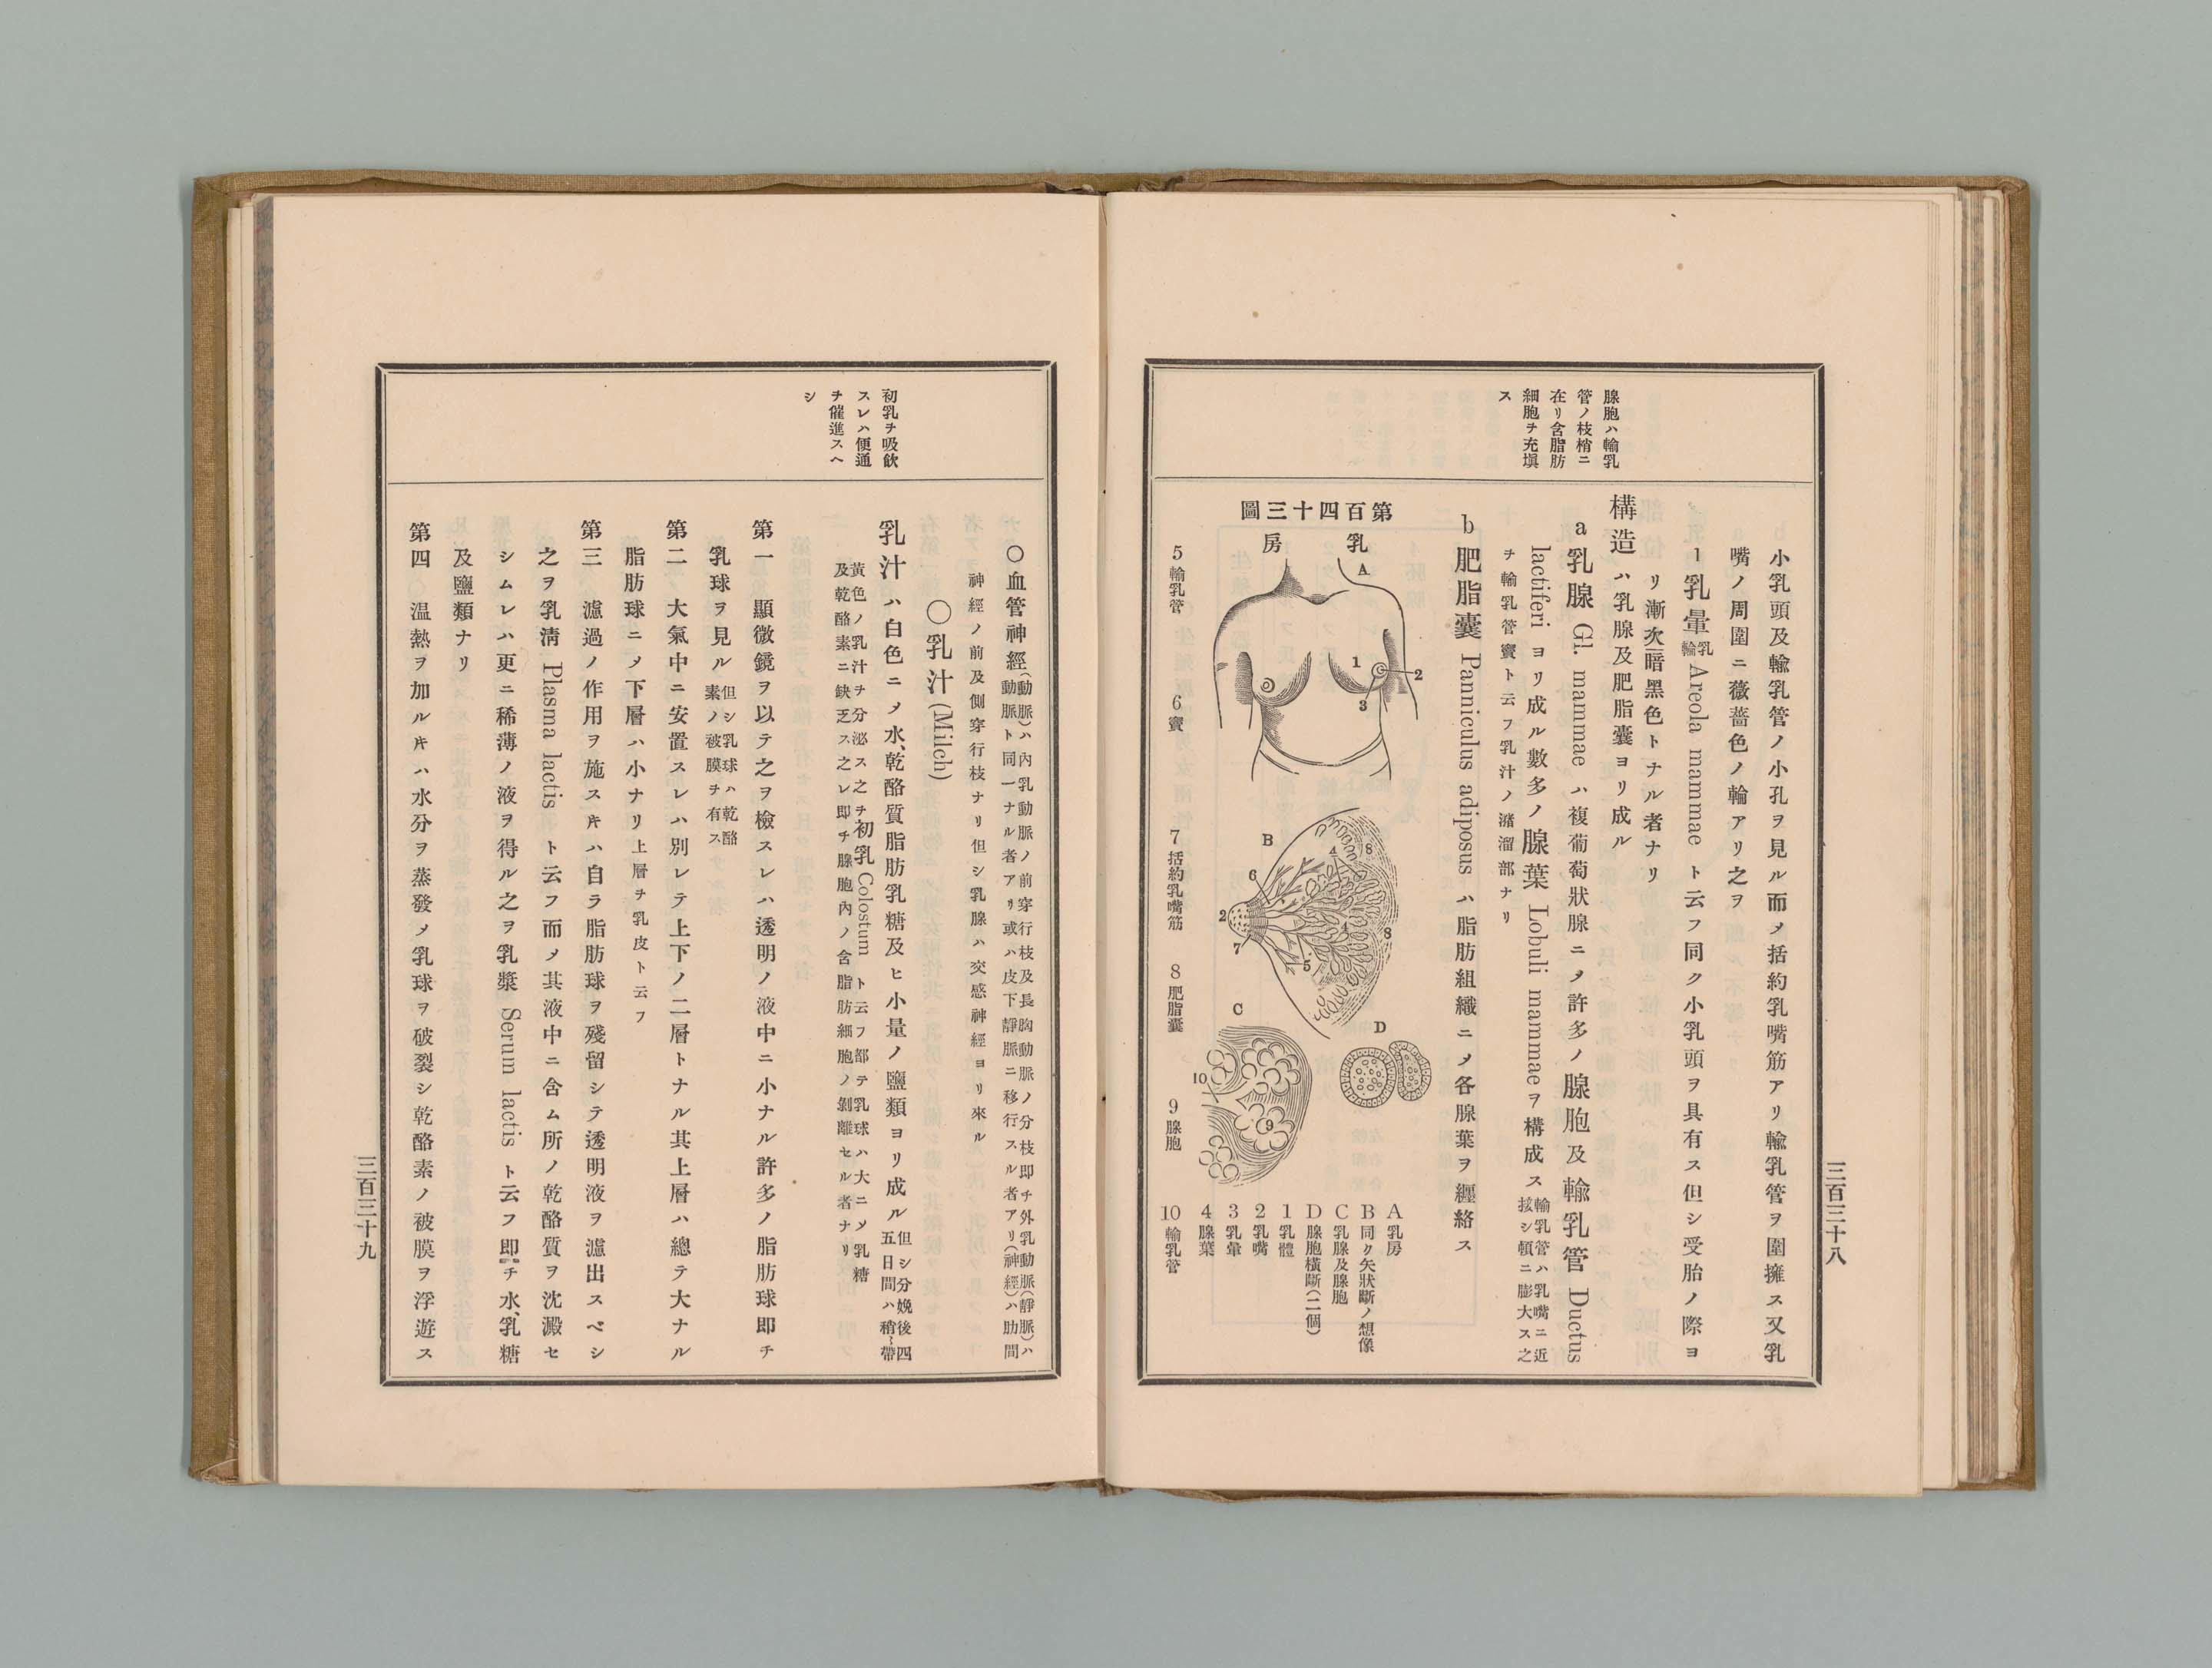 腺胞ハ輸乳
管ノ枝梢ニ
在リ含脂肪
細胞チ充塡
ス
小乳頭及輸乳管ノ小孔ヲ見ル而〆括約乳嘴筋アリ輸乳管ヲ圍擁ス又乳
嘴ノ周圍ニ薇薔色ノ輪アリ之ヲ
1 乳暈 乳輪 Areola mammae ト云フ同ク小乳頭ヲ具有ス但シ受胎ノ際ヨ
リ漸次暗黑色トナル者ナリ
構造ハ乳腺及肥脂囊ヨリ成ル
a 乳腺 Gl. mammae ハ複葡萄狀腺ニ〆許多ノ腺胞及輸乳管 Ductus
lactiferi ヨリ成ル數多ノ腺葉 Lobuli mammae ヲ構成ス 輸乳管ハ乳嘴ニ近
接シ頓ニ膨大ス之
チ輸乳管竇ト云フ乳汁ノ瀦溜部ナリ
b 肥脂囊 Panniculus adiposus ハ脂肪組織ニ〆各腺葉ヲ纒絡ス
第百四十三圖
乳房
A
1
2
3
B
8
4
6
2
7
5
4
8
C
10
9
D
A 乳房
B 同ク矢狀斷ノ想像
C 乳腺及腺胞
D 腺胞橫斷(二個)
1 乳體
2 乳嘴
3 乳暈
4 腺葉
10 輸乳管
5 輸乳管
6 竇
7 括約乳嘴筋
8 肥脂囊
9 腺胞
三百三十八
初乳チ吸飮
スレハ便通
チ催進スヘ
シ
〇血管神經(動脈)ハ內乳動脈ノ前穿行枝及長胸動脈ノ分枝即チ外乳動脈(靜脈)ハ
動脈ト同一ナル者アリ或ハ皮下靜脈ニ移行スル者アリ(神經)ハ肋間
神經ノ前及側穿行枝ナリ但シ乳腺ハ交感神經ヨリ來ル
〇乳汁 (Milch)
乳汁ハ白色ニ〆水、乾酪質脂肪乳糖及ヒ小量ノ鹽類ヨリ成ル 但シ分娩後四
五日間ハ稍〻帶
黃色ノ乳汁チ分泌ス之チ初乳 Colostum ト云フ部テ乳球ハ大ニ〆乳糖
及乾酪素ニ缺乏ス之レ即チ腺胞內ノ含脂肪細胞ノ剝離セル者ナリ
第一 顯微鏡ヲ以テ之ヲ檢スレハ透明ノ液中ニ小ナル許多ノ脂肪球即チ
乳球ヲ見ル 但シ乳球ハ乾酪
素ノ被膜チ有ス
第二 大氣中ニ安置スレハ別レテ上下ノ二層トナル其上層ハ總テ大ナル
脂肪球ニ〆下層ハ小ナリ 上層チ乳皮ト云フ
第三 濾過ノ作用ヲ施スキハ自ラ脂肪球ヲ殘留シテ透明液ヲ濾出スベシ
之ヲ乳淸 Plasma lactis ト云フ而〆其液中ニ含ム所ノ乾酪質ヲ沈澱セ
シムレハ更ニ稀薄ノ液ヲ得ル之ヲ乳漿 Serum lactis ト云フ即チ水、乳糖
及鹽類ナリ
第四 温熱ヲ加ルキハ水分ヲ蒸發〆乳球ヲ破裂シ乾酪素ノ被膜ヲ浮遊ス
三百三十九